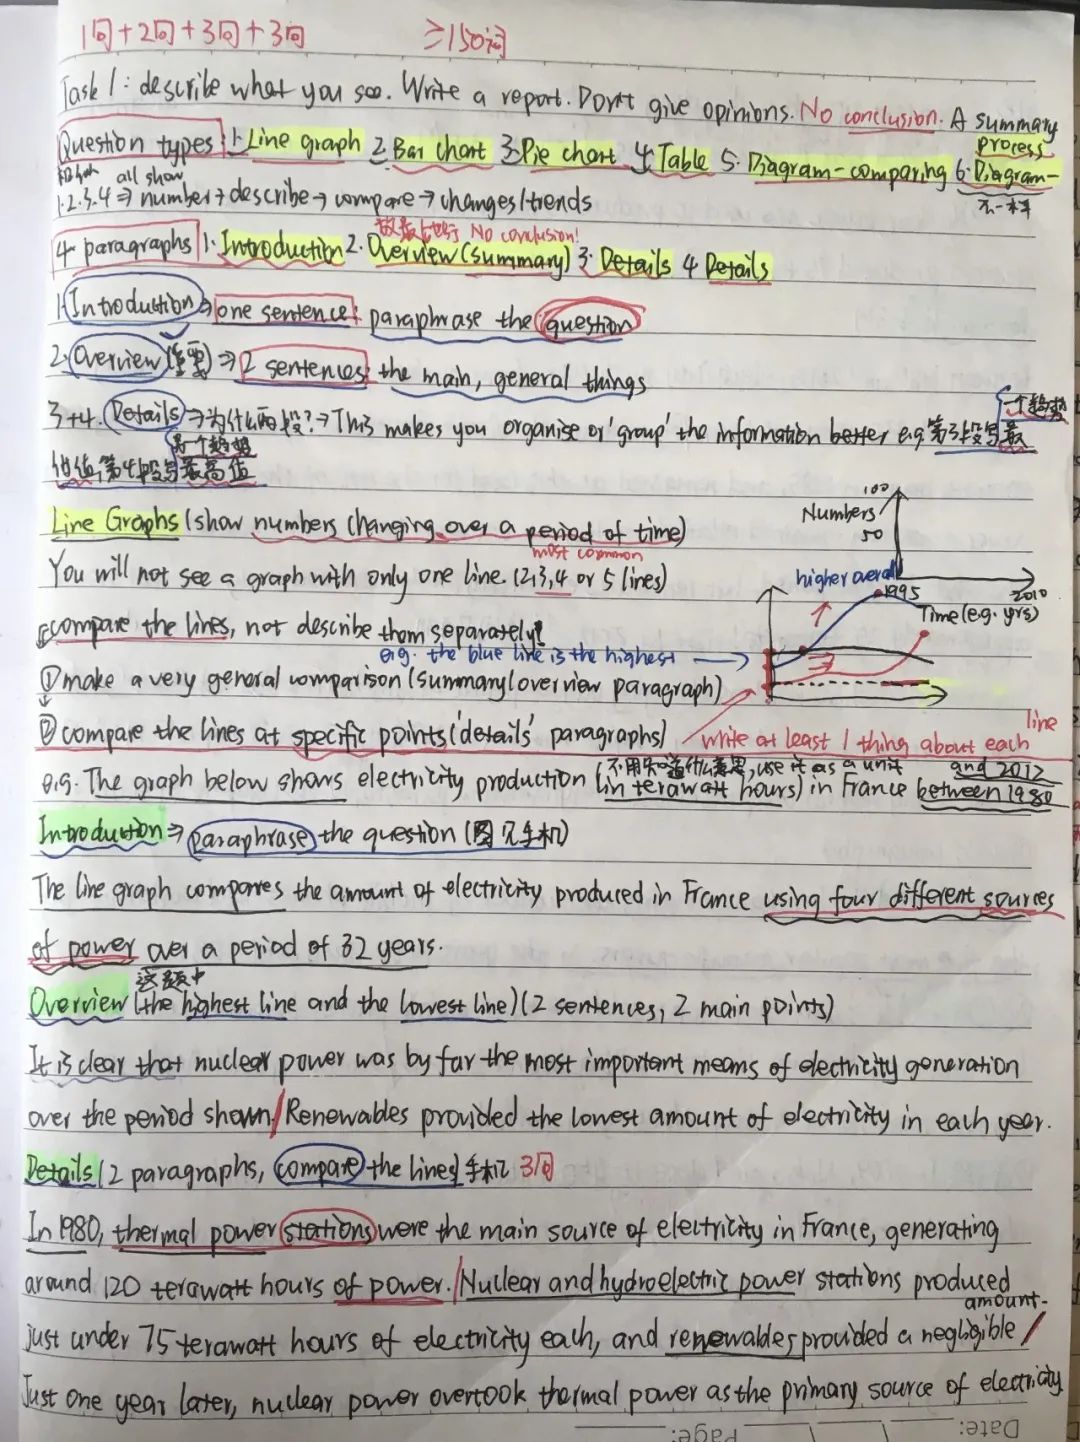 1句+2句+3句+3句 ≥150词
Task 1: describe what you see. Write a report. Don't give opinions. No conclusion. A summary
Question types: 1. Line graph 2. Bar chart 3. Pie chart 4. Table 5. Diagram-comparing 6. Diagram-process
all show 不一样
1.2.3.4 ⇒ number → describe → compare → changes/trends
No conclusion!
4 paragraphs 1. Introduction 2. Overview (summary) 3. Details 4 Details
1. Introduction ⇒ one sentence: paraphrase the question
2. Overview (重要) ⇒ 2 sentences: the main, general things
一个趋势
3+4. Details → 为什么两段? → This makes you organise or 'group' the information better e.g. 第3段写最
另一个趋势
低值, 第4段写最高值
Line Graphs (show numbers changing over a period of time)
100
Numbers
50
most common
You will not see a graph with only one line. (2,3,4 or 5 lines)
higher overall
1995
2010
Time (e.g. yrs)
compare the lines, not describe them separately!
e.g. the blue line is the highest
① make a very general comparison (summary/overview paragraph)
② compare the lines at specific points ('details' paragraphs)
write at least 1 thing about each line
不用知道什么意思, use it as a unit
e.g. The graph below shows electricity production (in terawatt hours) in France between 1980 and 2012
Introduction ⇒ paraphrase the question (图见手机)
The line graph compares the amount of electricity produced in France using four different sources
of power over a period of 32 years.
这题中
Overview (the highest line and the lowest line) (2 sentences, 2 main points)
It is clear that nuclear power was by far the most important means of electricity generation
over the period shown/Renewables provided the lowest amount of electricity in each year.
Details (2 paragraphs, compare the lines) 手机 3句
In 1980, thermal power stations were the main source of electricity in France, generating
around 120 terawatt hours of power./Nuclear and hydroelectric power stations produced
just under 75 terawatt hours of electricity each, and renewables provided a negligible amount./
Just one year later, nuclear power overtook thermal power as the primary source of electricity
Page:
Date: